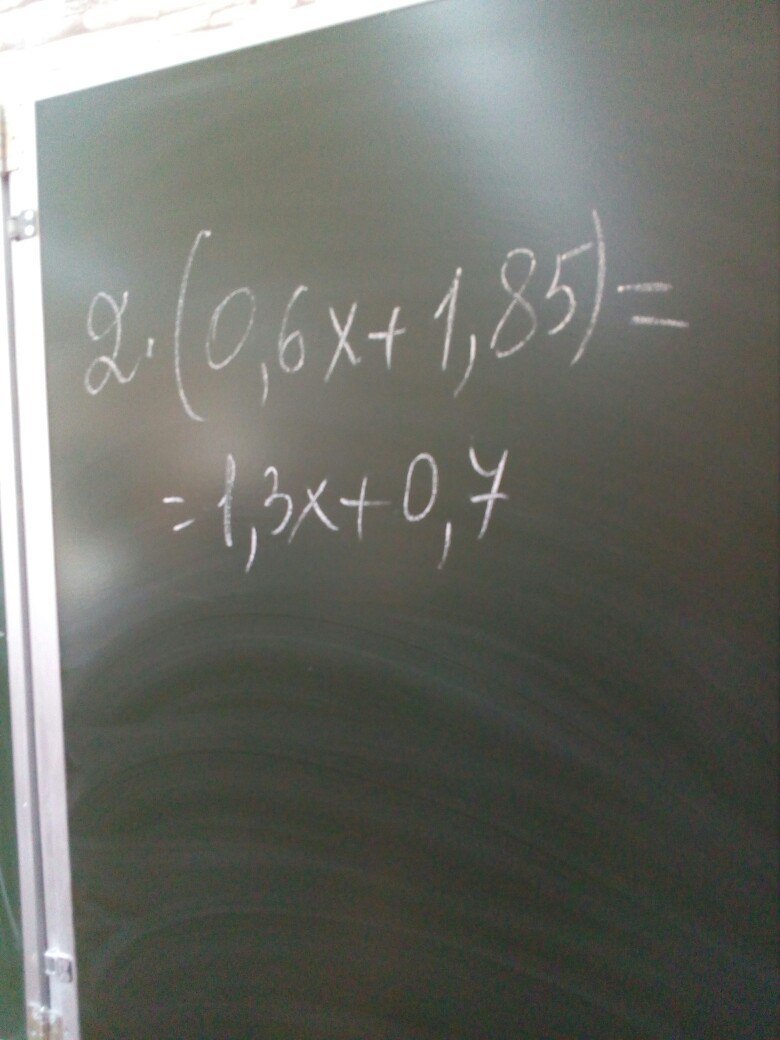 2·(0,6x+1,85)=
=1,3x+0,7